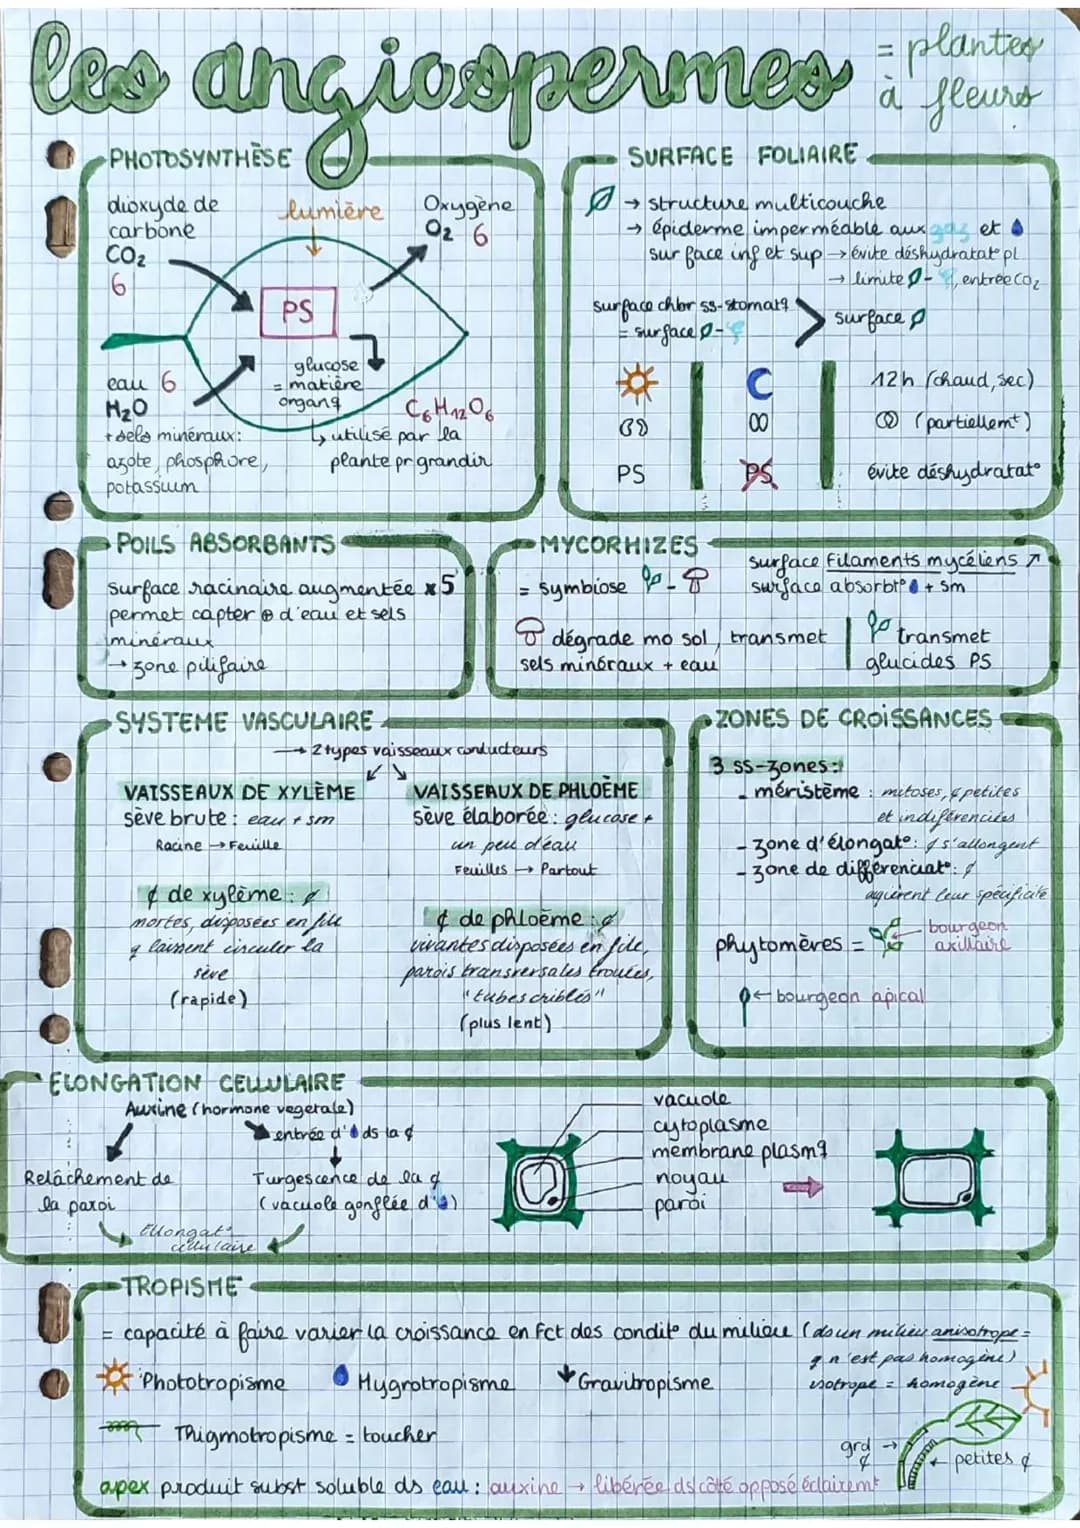 les angiospermes = plantes
à fleurs
PHOTOSYNTHÈSE
dioxyde de
carbone
CO2
6
lumière
Oxygène
O2 6
PS
glucose
= matière
organq
C6H12O6
eau 6
H2O
+ sels minéraux:
azote, phosphore,
potassium
↳ utilisé par la
plante pr grandir
SURFACE FOLIAIRE
→ structure multicouche
→ épiderme imperméable aux gaz et
surface inf et sup → évite déshydratat° pl
→ limite - , entrée CO2
surface chbr ss-stomatq
= surface -
> surface
12h (chaud, sec)
(partiellemt)
PS
PS
évite déshydratat°
POILS ABSORBANTS
surface racinaire augmentée x5
permet capter ⊕ d'eau et sels
minéraux
→ zone pilifaire
MYCORHIZES
= symbiose -
surface filaments mycéliens ↗
surface absorbt° + sm
dégrade mo sol, transmet
sels minéraux + eau
transmet
glucides PS
SYSTEME VASCULAIRE
→ 2 types vaisseaux conducteurs
VAISSEAUX DE XYLÈME
sève brute : eau + sm
Racine → Feuille
¢ de xylème : ¢
mortes, disposées en file
q laissent circuler la
sève
(rapide)
VAISSEAUX DE PHLOÈME
sève élaborée : glucose +
un peu d'eau
Feuilles → Partout
¢ de phloème : ¢
vivantes disposées en file,
parois transversales trouées,
"tubes criblés"
(plus lent)
ZONES DE CROISSANCES
3 ss-zones :
- méristème : mitoses, ¢ petites
et indiférenciées
- zone d'élongat° : ¢ s'allongent
- zone de différenciat° : ¢
aquièrent leur spécificité
phytomères =
← bourgeon
axillaire
← bourgeon apical
ELONGATION CELLULAIRE
Auxine (hormone vegetale)
entrée d' ds la ¢
Relâchement de
la paroi
Turgescence de la ¢
(vacuole gonflée d' )
Ellongat°
cellulaire
vacuole
cytoplasme
membrane plasmq
noyau
paroi
TROPISME
= capacité à faire varier la croissance en fct des condit° du milieu (ds un milieu anisotrope =
q n'est pas homogène)
isotrope = homogène
Phototropisme
Hygrotropisme
Gravitropisme
Thigmotropisme = toucher
grd →
¢
← petites ¢
apex produit subst soluble ds eau : auxine → libérée ds côté opposé éclairemt